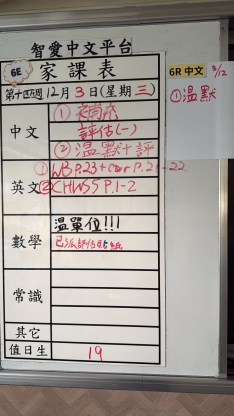 智愛中文平台
6E 家課表
第十四週12月3日(星期三)
中文
①補充
評估(一)
②溫默+評
英文
①WB P.23+cor P.21-22
②CHWSS P.1-2
數學
溫單位!!!
常識
其它
值日生
19
6R 中文 3/12
①溫默